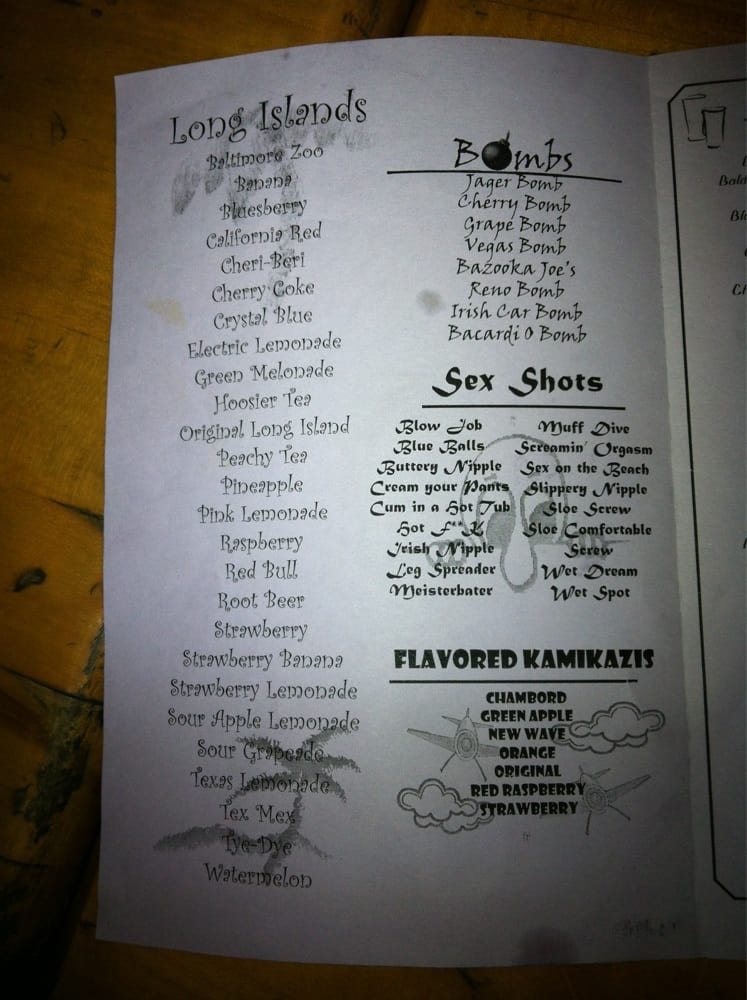 Long Islands
Baltimore Zoo
Banana
Bluesberry
California Red
Cheri-Beri
Cherry Coke
Crystal Blue
Electric Lemonade
Green Melonade
Hoosier Tea
Original Long Island
Peachy Tea
Pineapple
Pink Lemonade
Raspberry
Red Bull
Root Beer
Strawberry
Strawberry Banana
Strawberry Lemonade
Sour Apple Lemonade
Sour Grapeade
Texas Lemonade
Tex Mex
Tye-Dye
Watermelon
Bombs
Jager Bomb
Cherry Bomb
Grape Bomb
Vegas Bomb
Bazooka Joe's
Reno Bomb
Irish Car Bomb
Bacardi O Bomb
Sex Shots
Blow Job
Blue Balls
Buttery Nipple
Cream your Pants
Cum in a Hot Tub
Hot F**K
Irish Nipple
Leg Spreader
Meisterbater
Muff Dive
Screamin' Orgasm
Sex on the Beach
Slippery Nipple
Sloe Screw
Sloe Comfortable
Screw
Wet Dream
Wet Spot
FLAVORED KAMIKAZIS
CHAMBORD
GREEN APPLE
NEW WAVE
ORANGE
ORIGINAL
RED RASPBERRY
STRAWBERRY